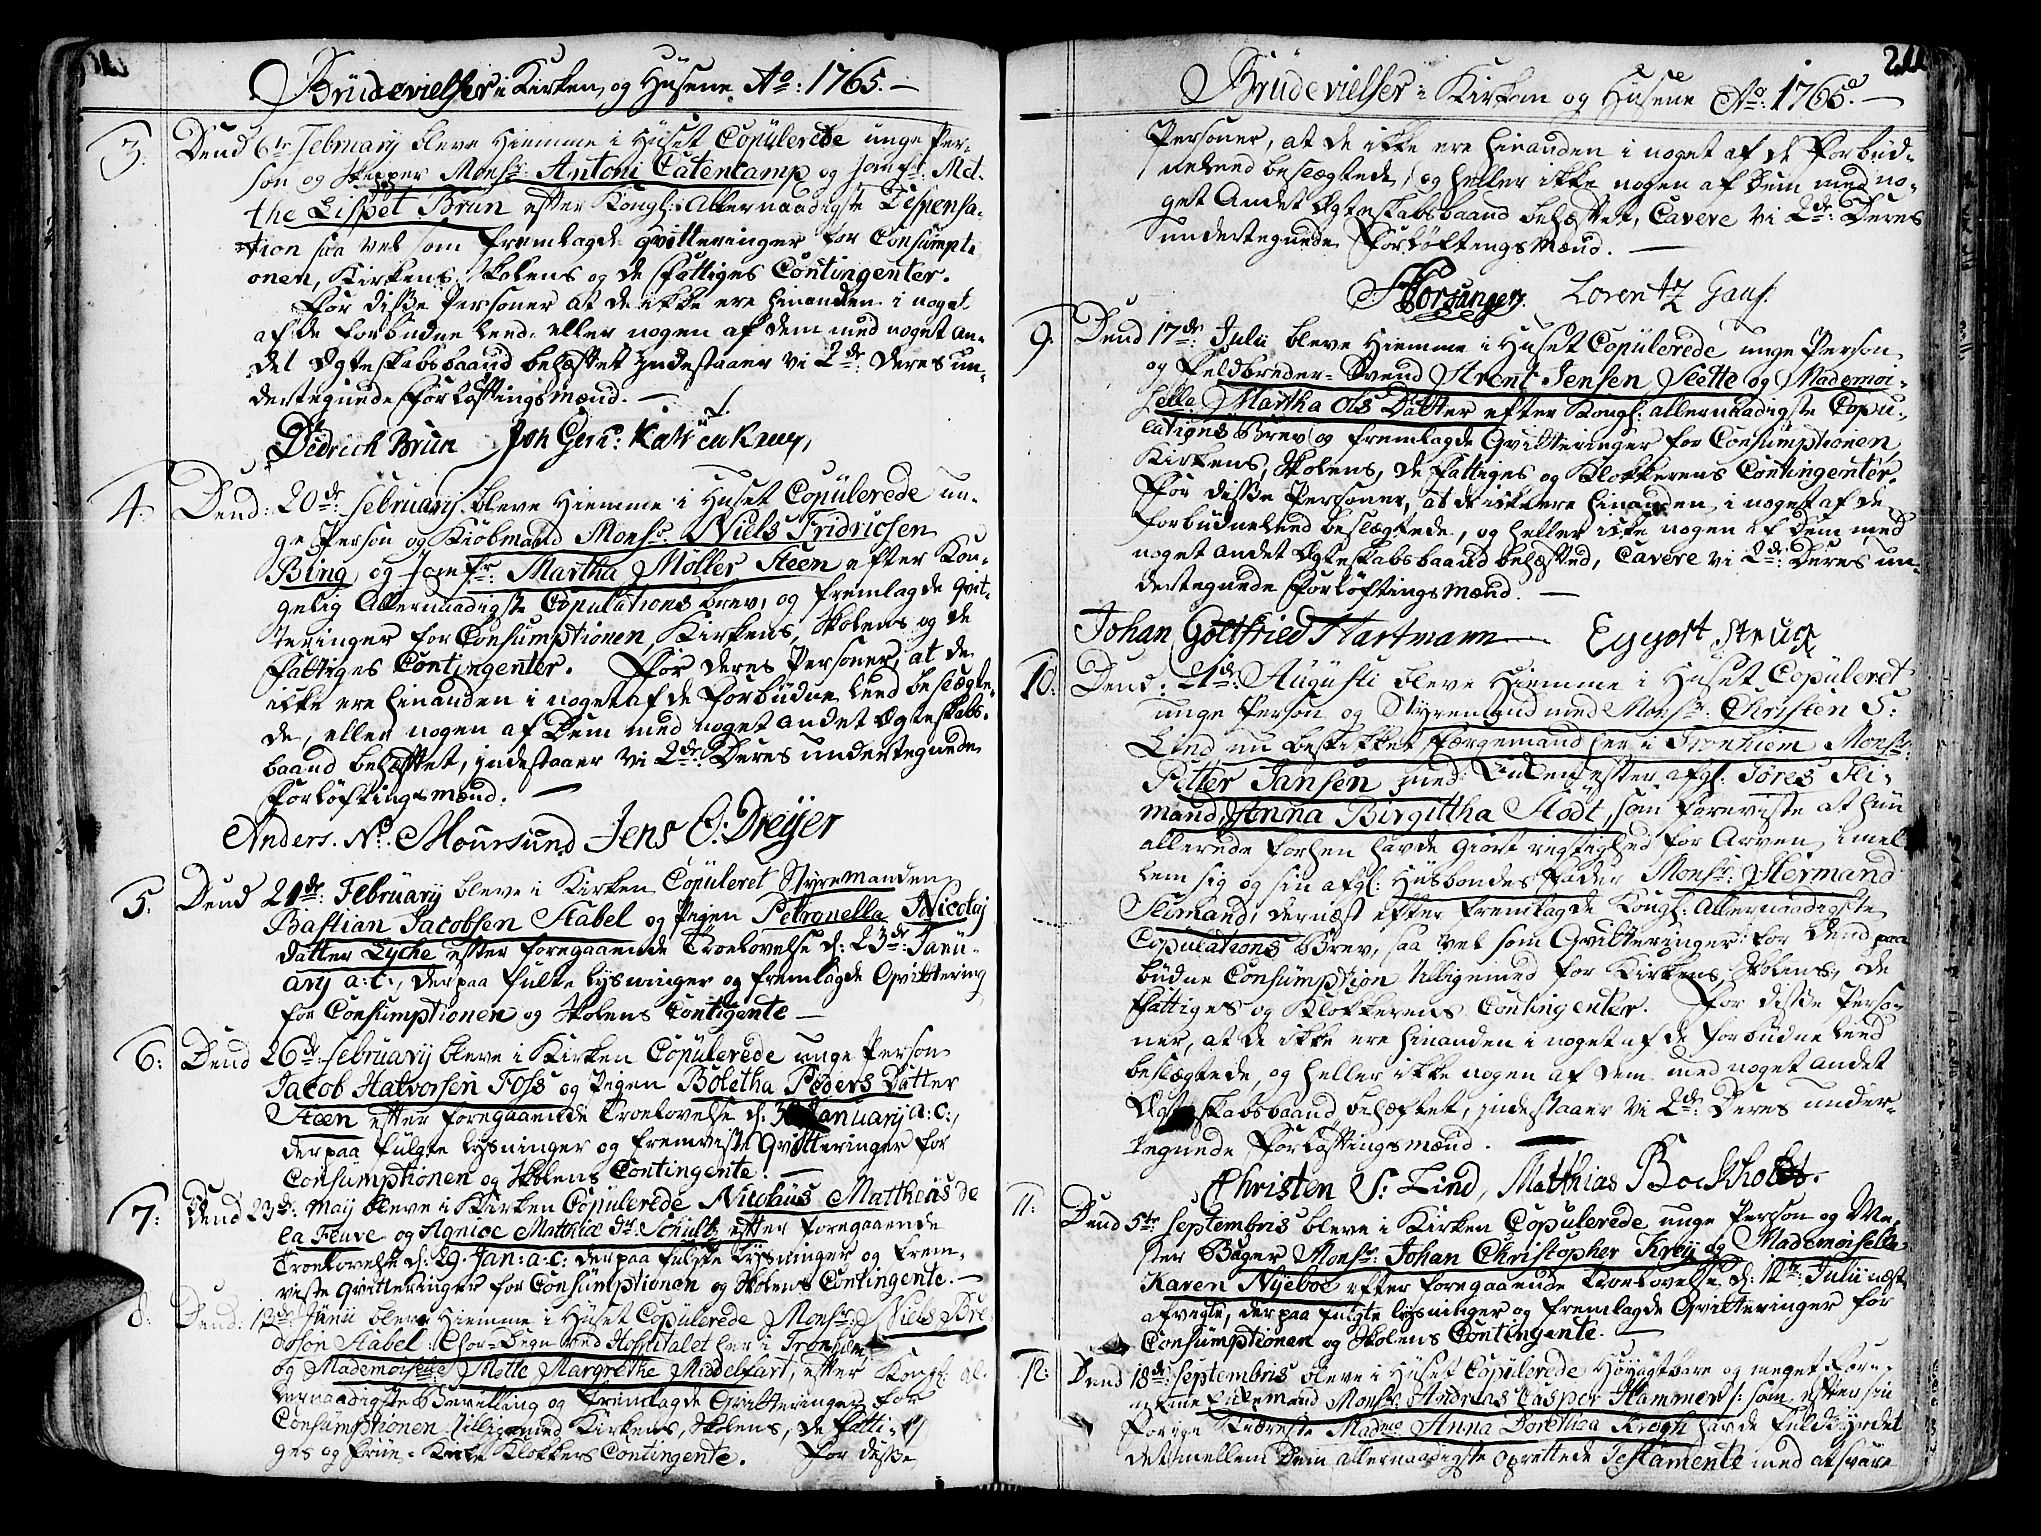 Brüdevielser i Kirken og Hüsene Ao: 1765.
3. Dend 6te February bleve hiemme i Hüset Copülerede unge Per-
son og Skipper Monsr: Antoni Catencamp og Jomfr: Mal-
the Lispet Brun efter Kongl: Allernaadigste Dispensa-
tion saa vel som fremlagde qvitteringer for Consumpti
onen, Kirkens, Skolens og de Fattiges Contingenter.
For disse Personer at de ikke ere hinanden i noget
af de forbudne leed, eller nogen af dem med noget an-
det Ægteskabsbaand behæftet Indestaaer vi 2de: Deres un-
dertegnede Forløftingsmænd.
Didrich Brun Joh Gerh:
4. Dend: 20de: February bleve hiemme i Huset Copülerede un-
ge Person og Kiøbmand Monsr. Niels Fridricsen
Bing og Jomfr: Martha Møller Steen efter Kon-
gelig Allernaadigste Copulations brev, og fremlagde qvit-
teringer for Consumptionen, Kirkens, Skolens og de
Fattiges Contingenter. For deres Personer, at de
icke ere hinanden i noget af de forbudne leed beslægte-
de, eller nogen af Dem med noget andet Ægteskabs-
baand behæftet, indestaaer vi 2de: Deres undertegnede
Forløftingsmænd.
Anders. N. Moursund Jens O: Dreÿer
5. Dend 21de February bleve i Kirken Copuleret Styremanden
Bastian Jacobsen Stabel og Pigen Petronella Nicolaj
datter Lyche efter foregaaende Troelovelse d: 23de: Janu-
arij a: c:, derpaa fulte lysninger og fremlagde Qvittering
for Consumptionen og Skolens Contigente
6: Dend 26de: February bleve i Kirken Copülerede unge Person
Jacob Halvorsen Foss og Pigen Boletha Peders Datter
Steen efter foregaaende Troelovelse d. Januarij a: c:,
derpaa fulgte lysninger og fremviste Qvitteringer for
Consumptionen og Skolens Contingente.
7: Dend 23de: Maij bleve i Kirken Copulerede Nicolaus Mattheus de
la Feuve og Agnice Matthiæ dtr Schultz efter foregaaende
Troelovelse d: 29. Jan: a: c: derpaa fulgte Lysninger og frem-
viste qvitteringer for Consumptionen og Skolens Contingente.
8: Dend: 12de: Junii bleve hiemme i Huset Copulerede Monsr: Niels Bre
dosen Stabel: Chor-Degn ved Hospitalet her i Tronhiem
og Mademoiselle Mette Margrethe Middelfart, efter Kongl: al-
lernaadigste Bevilling og Fremlagde Qvitteringer for
Consumptionen tilligemed Kirkens, Skolens, de Fatti-
ges og Frue-Kirke Klokkers Contingente. For disse
Brüdevielser i Kirken og Hüsene Ao: 1765.
Personer, at de ikke ere hinanden i noget af de forbud-
ne leed beslægtede, og heller ikke nogen af Dem med no-
get Andet Ægteskabsbaand behæftet, Cavere vi 2de: Deres
undertegnede Forløftingsmænd.
Horsanger. Lorentz Gans.
9: Dend 17de: Julii bleve hiemme i Huset Copulerede unge Person
og Feldbreder-Svend Arent Jensen Slette og Mademoi-
selle Martha Ols Datter efter Kongl: allernaadigste Copu-
lations Brev og fremlagde Qvitteringer for Consumptionen,
Kirkens, Skolens, de Fattiges og Klokkerens Contingenter.
For disse Personer, at de icke ere hinanden i noget af de
forbudne leed beslægtede, og heller icke nogen af Dem med
noget andet Ægteskabsbaand behæfted, Cavere vi 2de: Deres un-
dertegnede Forløftings Mænd.
Johan Gottfried Hartmann Eggert Struck
10: Dend: 21de: Augusti bleve hiemme i Huset Copuleret
unge Person og Styremand med Monsr. Christen S:
Lind nu beskikket Færgemand her i Tronhiem Monsr:
Petter Jansen med Enken efter afgl: Jøres Fli-
mand, Anna Birgittha Stodt, som foreviste at hun
allerede forhen havde giort rigtighed for Arven imel-
lem sig og sin afgl: Husbondes Fader Monsr: Hermand
Flimand, dernæst efter fremlagde Kongl: Allernaadigste
Copulations Brev, saa vel som Qvitteringer for Dend paa
budne Consumption tilligemed for Kirkens, Skolens, de
Fattiges og Klokkerens Contingenter. For disse Perso-
ner, at de ikke ere hinanden i noget af de forbudne leed
beslægtede, og heller ikke nogen af dem med noget andet
Ægteskabsbaand behæftet, indestaaer vi 2de: Deres under-
tegnede Forløftingsmænd.
Christen S: Lind, Matthias Bockholt.
11: Dend 5te Septembris bleve i Kirken Copulerede unge Person og Me-
ster Bager Monsr: Johan Christopher Krøy og Mademoiselle
Karen Nyeboe efter foregaaende Troelovelse d. 12te: Julii næst
afvigte, derpaa fulgte lysninger og fremlagde Qvitteringer for
Consumptionen og Skolens Contingente.
12: Dend 18de: Septembris bleve i Huset Copulerede Høyagtbare og meget For-
nemme Enkemand Monsr: Andreas Casper Hammer, som efter sin
forrige Kiæreste Madme Anna Dorethea Krogh havde fuldbyrdet
det imellem Dem allernaadigste oprettede Testamente med at svare